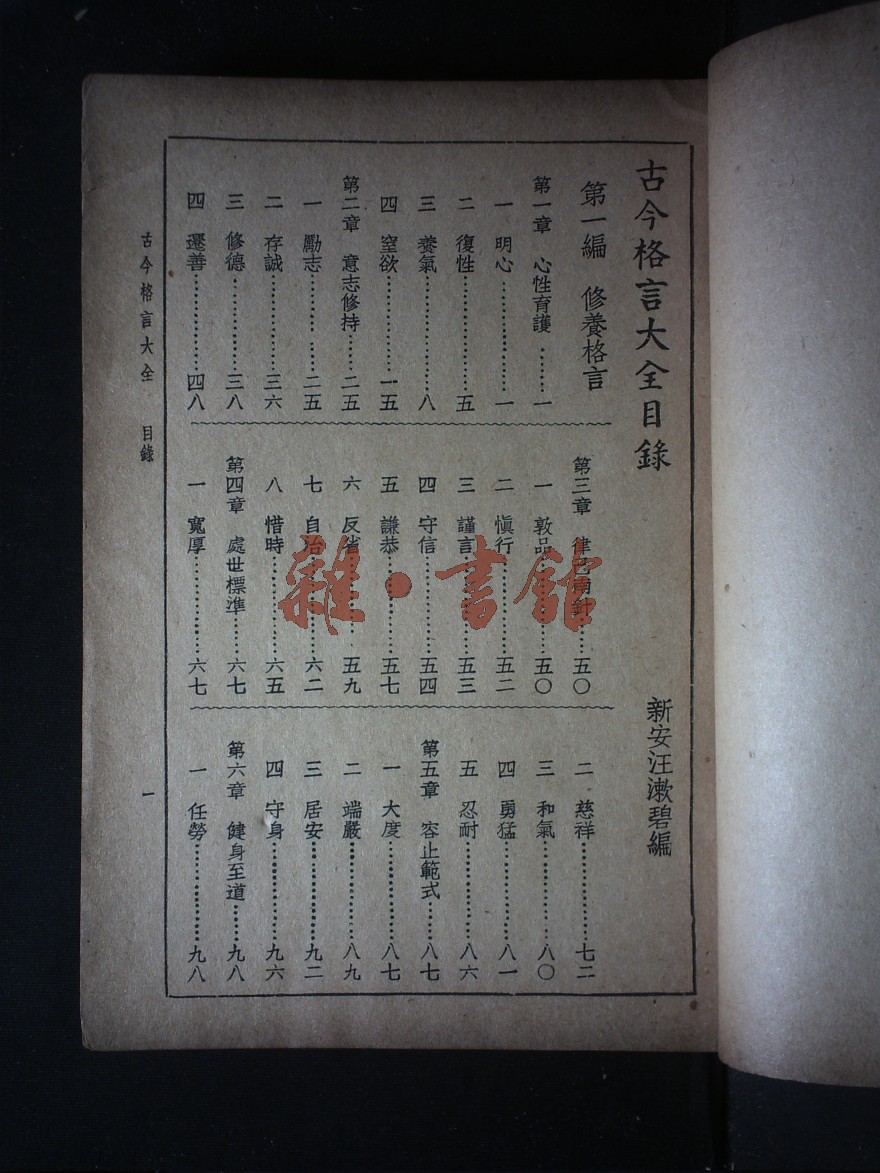 古今格言大全目錄
新安汪漱碧編
第一編　修養格言
第一章　心性育護………一
一　明心………一
二　復性………五
三　養氣………八
四　窒欲………一五
第二章　意志修持……二五
一　勵志………二五
二　存誠………三六
三　修德………三八
四　遷善………四八
第三章　律己南針……五〇
一　敦品………五〇
二　愼行………五二
三　謹言………五三
四　守信………五四
五　謙恭………五七
六　反省………五九
七　自治………六二
八　惜時………六五
第四章　處世標準……六七
一　寬厚………六七
二　慈祥………七二
三　和氣………八〇
四　勇猛………八一
五　忍耐………八六
第五章　容止範式……八七
一　大度………八七
二　端嚴………八九
三　居安………九二
四　守身………九六
第六章　健身至道……九八
一　任勞………九八
古今格言大全　目錄
一
雜·書館